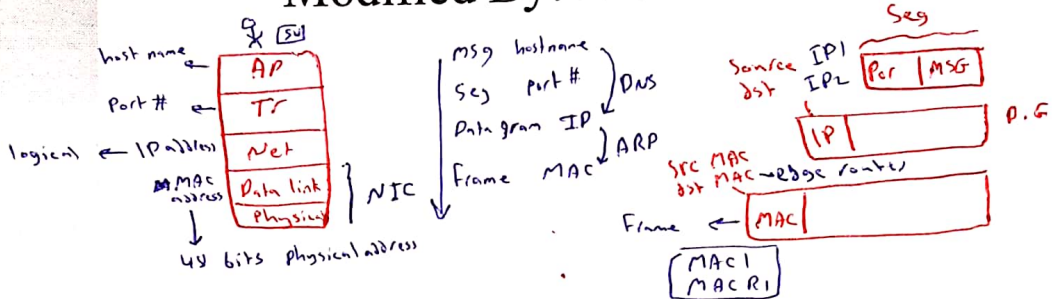 Modified By:
SW
host name
AP
Port #
Tr
logical ← IP address
Net
MAC address
Data link
Physical
NIC
48 bits physical address
msg hostname
Seg Port #
DNS
Datagram IP
ARP
Frame MAC
Seg
Source IP1
dst IP2
Por MSG
IP
D.G
Src MAC
dst MAC → edge router
Frame ← MAC
MAC1
MAC R1